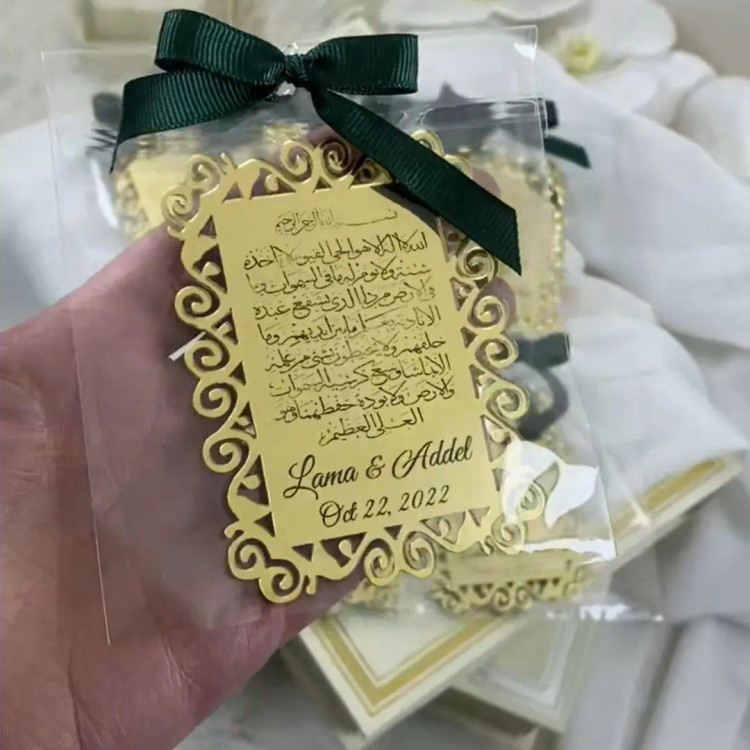 بسم الله الرحمن الرحيم
الله لا إله إلا هو الحي القيوم لا تأخذه
سنة ولا نوم له ما في السموات وما
في الأرض من ذا الذي يشفع عنده
إلا بإذنه يعلم ما بين أيديهم وما
خلفهم ولا يحيطون بشيء من علمه
إلا بما شاء وسع كرسيه السموات
والأرض ولا يؤده حفظهما وهو
العلي العظيم
Lama & Addel
Oct 22, 2022